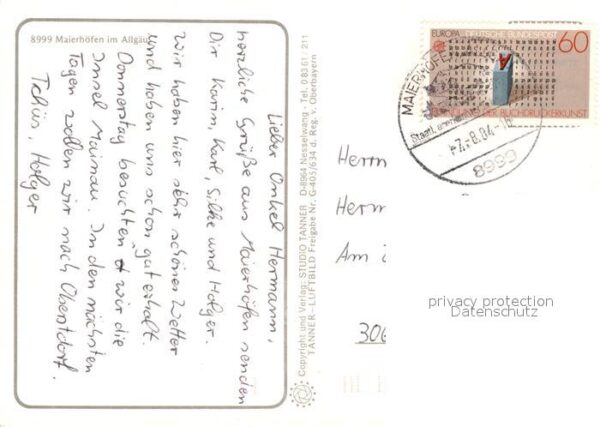 8999 Maierhöfen im Allgäu
Lieber Onkel Hermann,
herzliche Grüße aus Maierhöfen senden
Dir Karin, Karl, Silke und Holger.
Wir haben hier sehr schönes Wetter
und haben uns schon gut erholt.
Donnerstag besuchten wir die
Insel Mainau. In den nächsten
Tagen wollen wir nach Oberstdorf.
Tschüs, Holger
Copyright und Verlag: STUDIO TANNER D-8964 Nesselwang - Tel. 0 83 61 / 211
TANNER - LUFTBILD Freigabe Nr. G-405/634 d. Reg. v. Oberbayern
EUROPA DEUTSCHE BUNDESPOST 60
DER BUCHDRUCKERKUNST
MAIERHÖFEN
8.84
8999
Herrn
Her
Am
306
privacy protection
Datenschutz